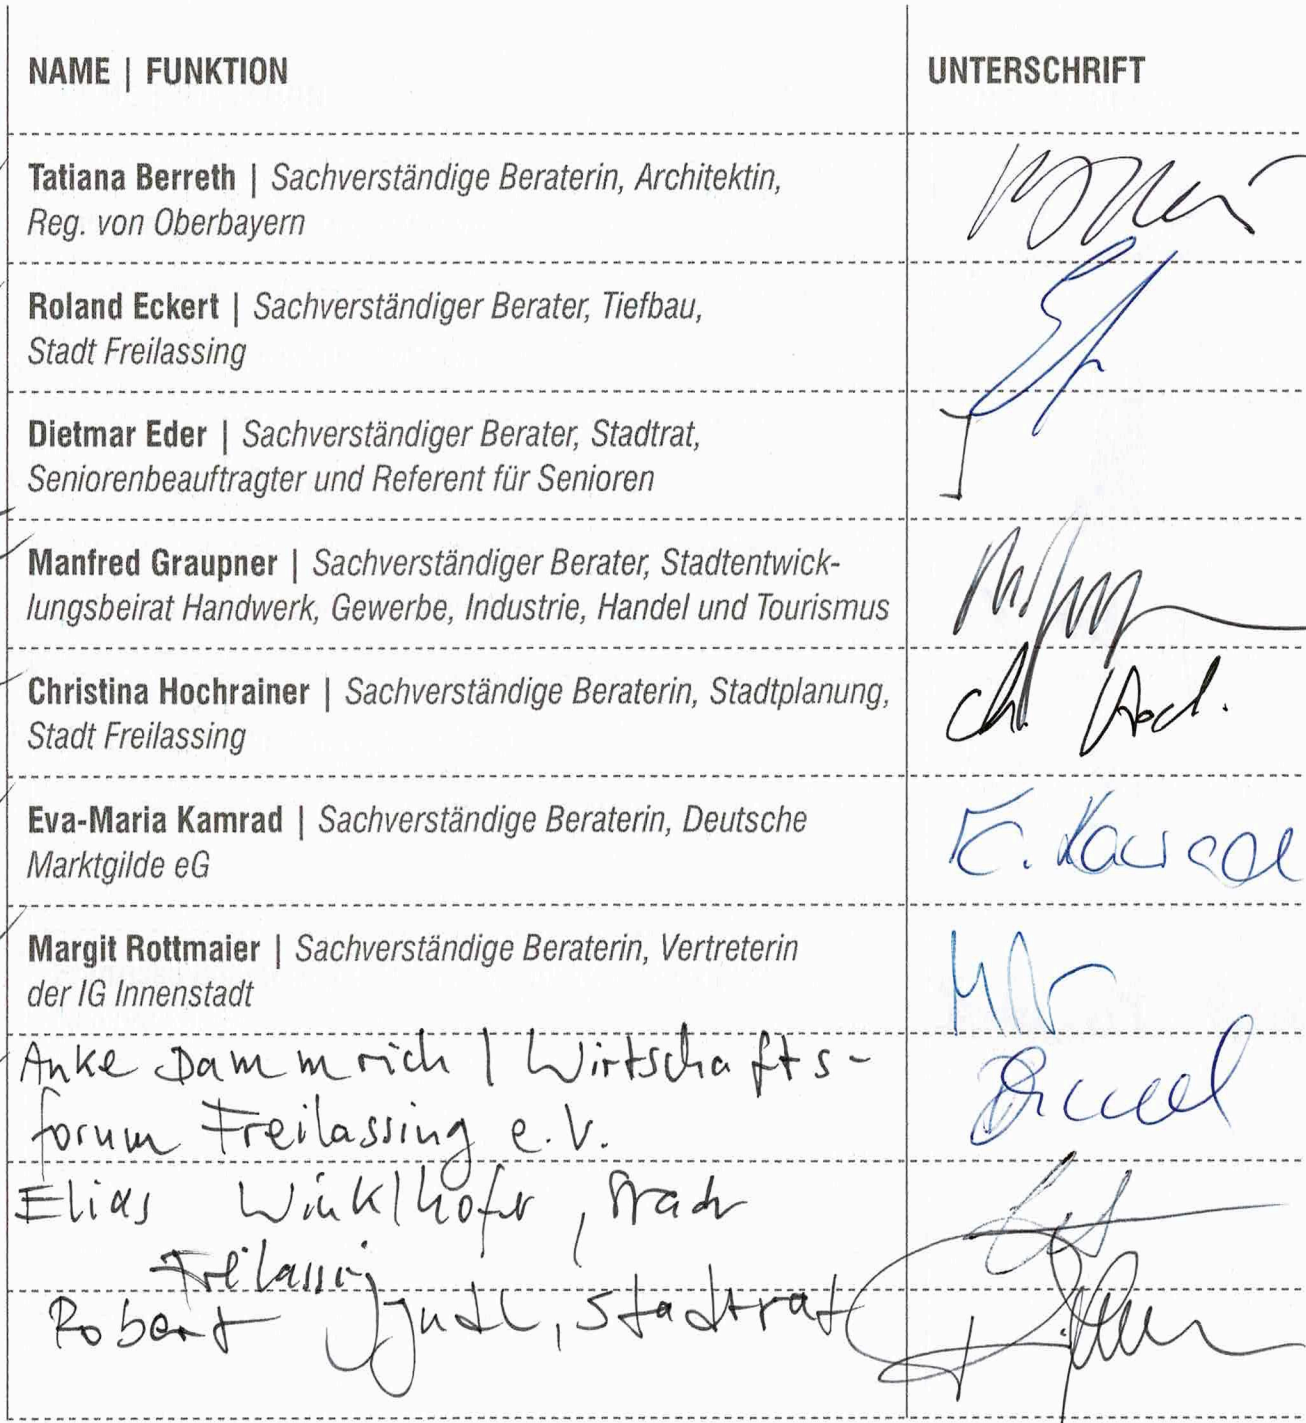 NAME | FUNKTION
UNTERSCHRIFT
Tatiana Berreth | Sachverständige Beraterin, Architektin,
Reg. von Oberbayern
Roland Eckert | Sachverständiger Berater, Tiefbau,
Stadt Freilassing
Dietmar Eder | Sachverständiger Berater, Stadtrat,
Seniorenbeauftragter und Referent für Senioren
Manfred Graupner | Sachverständiger Berater, Stadtentwick-
lungsbeirat Handwerk, Gewerbe, Industrie, Handel und Tourismus
Christina Hochrainer | Sachverständige Beraterin, Stadtplanung,
Stadt Freilassing
Ch. Hoch.
Eva-Maria Kamrad | Sachverständige Beraterin, Deutsche
Marktgilde eG
E. Kamrad
Margit Rottmaier | Sachverständige Beraterin, Vertreterin
der IG Innenstadt
Anke Dammrich | Wirtschafts-
forum Freilassing e.V.
Elias Winklhofer, Stadt
Freilassing
Robert Judl, Stadtrat